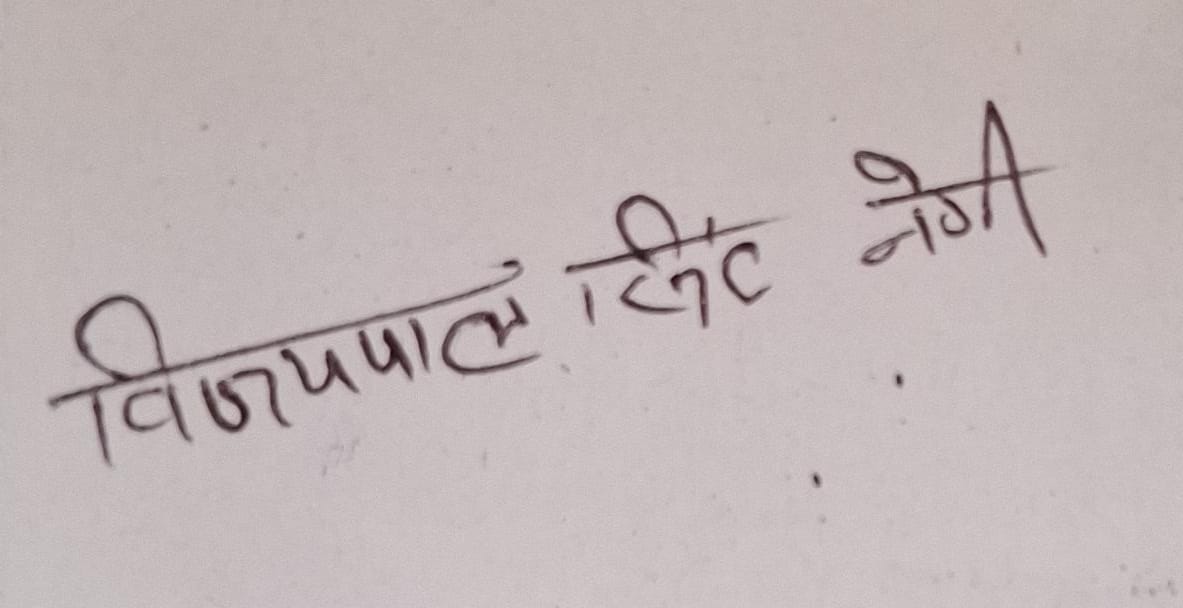 विजयपाल सिंह नेगी